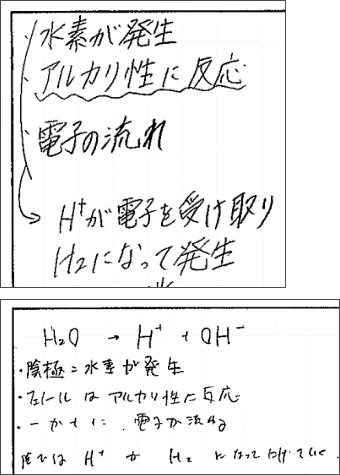 ・水素が発生
・アルカリ性に反応
・電子の流れ
→ H⁺が電子を受け取り
H₂になって発生
H₂O → H⁺ + OH⁻
・陰極 = 水素が発生
・フェノール はアルカリ性に反応
・ーから+に、電子が流れる
では H⁺ が H₂ になって